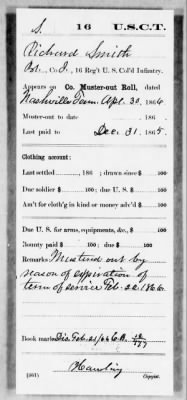 S. 16 U.S.C.T.
Richard Smith
Pvt., Co. I, 16 Reg't U. S. Col'd Infantry.
Appears on Co. Muster-out Roll, dated
Nashville Tenn. Apl. 30, 1866
Muster-out to date , 186 .
Last paid to Dec. 31, 1865.
Clothing account:
Last settled , 186 ; drawn since $ 100
Due soldier $ 100; due U. S. $ 100
Am't for cloth'g in kind or money adv'd $ 100
Due U. S. for arms, equipments, &c., $ 100
Bounty paid $ 100; due $ 100
Remarks: Mustered out by
reason of expiration of
term of service Feb. 22, 1866.
Book mark:
Hawling
(361) Copyist.